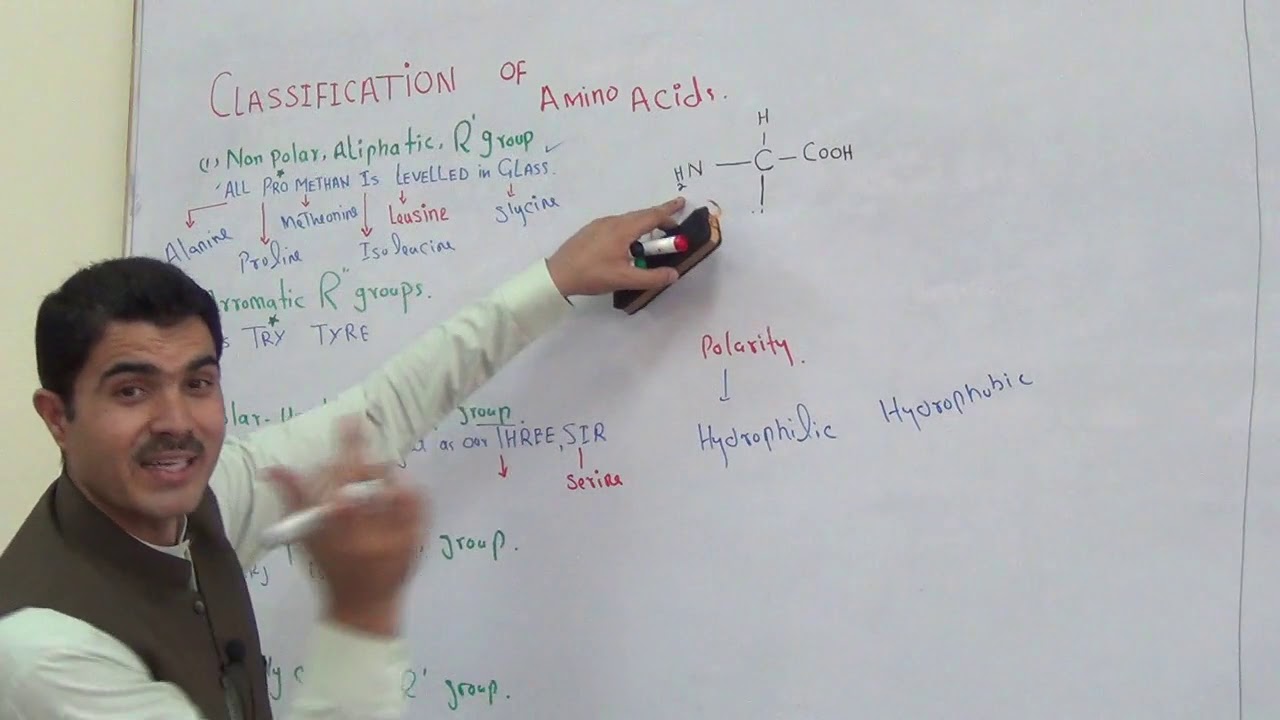 CLASSIFICATION OF Amino Acids.
(1), Non Polar, Aliphatic, R' group
ALL PRO METHAN Is LEVELLED in GLASS.
Alanine
Proline
Metheonine
Isoleucine
Leusine
Glycine
Arromatic R" groups.
TRY TYRE
group.
as our THREE, SIR
Serine
group.
R' group.
H
H2N — C — COOH
Polarity.
Hydrophilic Hydrophobic